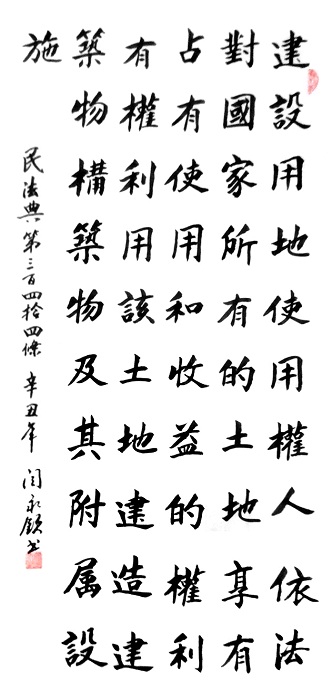 建設用地使用權人依法
對國家所有的土地享有
占有使用和收益的權利
有權利用該土地建造建
築物構築物及其附属設
施
民法典第三百四拾四條 辛丑年 闫永